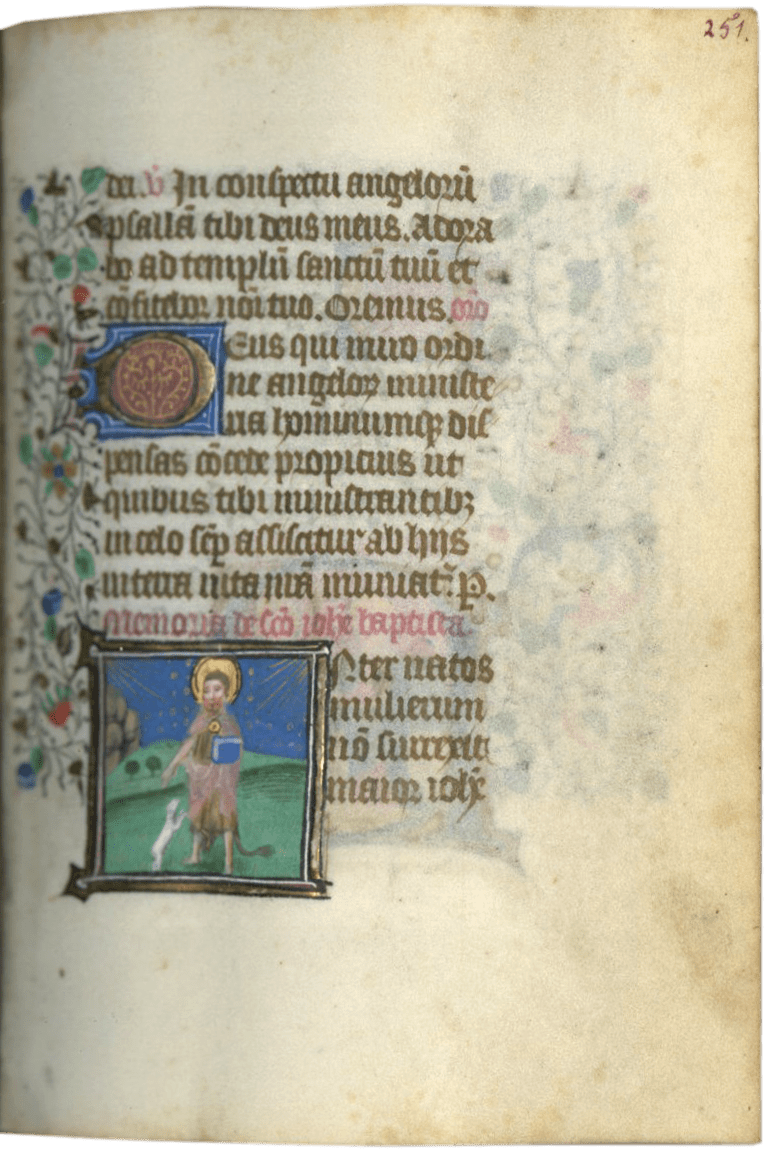 251.
dei. v̄ In conspectu angelorū
psallā tibi deus meus. Adora
bo ad templū sanctū tuū et
cōfitebor nōi tuo. Oremus. orō
Deus qui miro ordi
ne angeloꝝ ministe
ria hominumqꝫ dis
pensas cōcede propicius ut
quibus tibi ministrantibꝫ
in celo sēp assistitur ab hijs
in terra uita nr̄a muniat᷑. ꝑ.
Memoria de sc̄o ioh̄e baptista.
Inter natos
mulierum
nō surrexit
maior ioh̄e